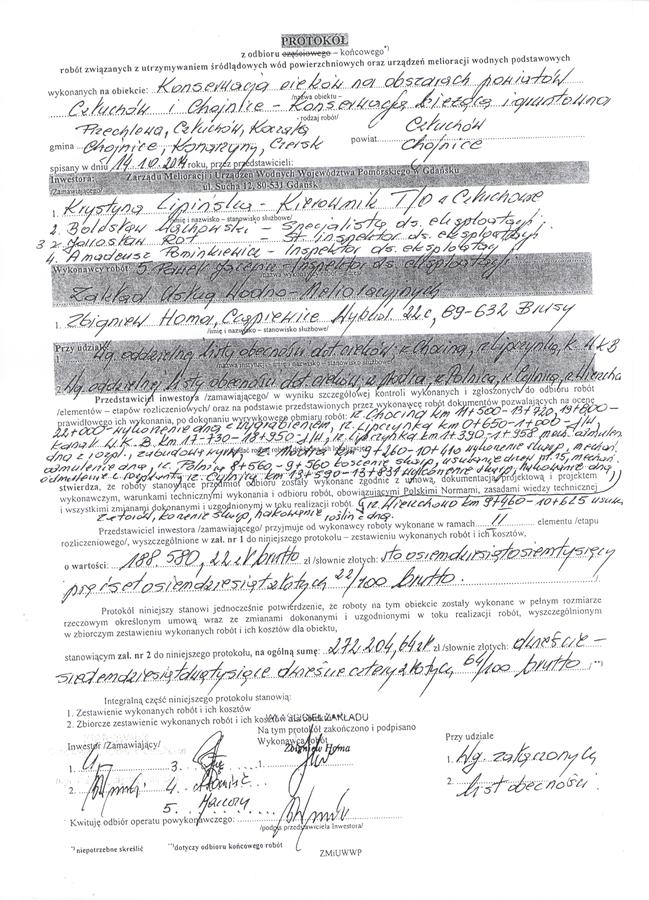 PROTOKÓŁ
z odbioru częściowego – końcowego*)
robót związanych z utrzymywaniem śródlądowych wód powierzchniowych oraz urządzeń melioracji wodnych podstawowych
wykonanych na obiekcie: Konserwacja cieków na obszarach powiatów
/nazwa obiektu –
Człuchów i Chojnice – Konserwacja bieżąca i gruntowna
- rodzaj robót/
Przechlewo, Człuchów, Koczała Człuchów
gmina Chojnice, Konarzyny, Czersk powiat Chojnice
spisany w dniu 14.10.2014 roku, przez przedstawicieli:
Inwestora: Zarządu Melioracji i Urządzeń Wodnych Województwa Pomorskiego w Gdańsku
/Zamawiającego/ ul. Sucha 12, 80-531 Gdańsk
1. Krystyna Lipińska – Kierownik T/O w Człuchowie
/imię i nazwisko – stanowisko służbowe/
2. Bolesław – Specjalista ds. eksploatacji
3 Jarosław Rot – St. inspektor ds. eksploatacji
4. Amadeusz Pominkiewicz – Inspektor ds. eksploatacji
Wykonawcy robót 5. Paweł Inspektor ds. eksploatacji
Zakład Usług Wodno-Melioracyjnych
1. Zbigniew Homa, Czapiewice Wybud. 22c, 89-632 Brusy
/imię i nazwisko – stanowisko służbowe/
Przy udziale 1. Wg. oddzielnej listy obecności dot. cieków, r. Chocina, r. Lipczynka, k. WKB
2. Wg. oddzielnej listy obecności dot. cieków, r. Modra, r. Pólnica, r. Cylnica, r. Wierzcha
Przedstawiciel inwestora /zamawiającego/ w wyniku szczegółowej kontroli wykonanych i zgłoszonych do odbioru robót
/elementów – etapów rozliczeniowych/ oraz na podstawie przedstawionych przez wykonawcę robót dokumentów pozwalających na ocenę
prawidłowego ich wykonania, po dokonaniu wyrywkowego obmiaru robót: r. Chocina km 11+500-13+920, 19+800-
22+000 wykoszenie dna z wygrabieniem, rz. Lipczynka km 0+650-1+000 -//-
Kanał W.K.B. km 17+730-18+950 -//-, rz. Lipczynka km 1+390-1+958 mech. odmulen.
dna z rozpl., km 9+260-10+410 wykoszenie skarp, mechan.
odmulenie dna, rz. Pólnica 8+560-9+560 koszenie skarp,
rz. Cylnica km 13+590-13+831 wykoszenie skarp,
stwierdza, że roboty stanowiące przedmiot odbioru zostały wykonane zgodnie z umową, dokumentacją projektową i projektem
wykonawczym, warunkami technicznymi wykonania i odbioru robót, obowiązującymi Polskimi Normami, zasadami wiedzy technicznej
i wszystkimi zmianami dokonanymi i uzgodnionymi w toku realizacji robót. rz. Wierzchowo km 9+460-10+625 usuw.
zatorów, koszenie skarp, hakowanie roślin z dna.
Przedstawiciel inwestora /zamawiającego/ przyjmuje od wykonawcy roboty wykonane w ramach II elementu /etapu
rozliczeniowego/, wyszczególnione w zał. nr 1 do niniejszego protokołu – zestawieniu wykonanych robót i ich kosztów,
o wartości: 188.580,22 zł brutto zł /słownie złotych: sto osiemdziesiąt osiem tysięcy
pięćset osiemdziesiąt złotych 22/100 brutto.
Protokół niniejszy stanowi jednocześnie potwierdzenie, że roboty na tym obiekcie zostały wykonane w pełnym rozmiarze
rzeczowym określonym umową wraz ze zmianami dokonanymi i uzgodnionymi w toku realizacji robót, wyszczególnionym
w zbiorczym zestawieniu wykonanych robót i ich kosztów dla obiektu,
stanowiącym zał. nr 2 do niniejszego protokołu, na ogólną sumę: 272.204,64 zł zł /słownie złotych: dwieście –
siedemdziesiąt dwa tysiące dwieście cztery złotych 64/100 brutto
Integralną część niniejszego protokołu stanowią:
1. Zestawienie wykonanych robót i ich kosztów
2. Zbiorcze zestawienie wykonanych robót i ich kosztów
WŁAŚCICIEL ZAKŁADU
Na tym protokół zakończono i podpisano
Inwestor /Zamawiający/ Wykonawca robót Przy udziale
Zbigniew Homa
1. 3. 1. 1. Wg. załączonych
2. 4. 2. list obecności.
5.
Kwituję odbiór operatu powykonawczego:
/podpis przedstawiciela Inwestora/
*)niepotrzebne skreślić **)dotyczy odbioru końcowego robót
ZMiUWWP